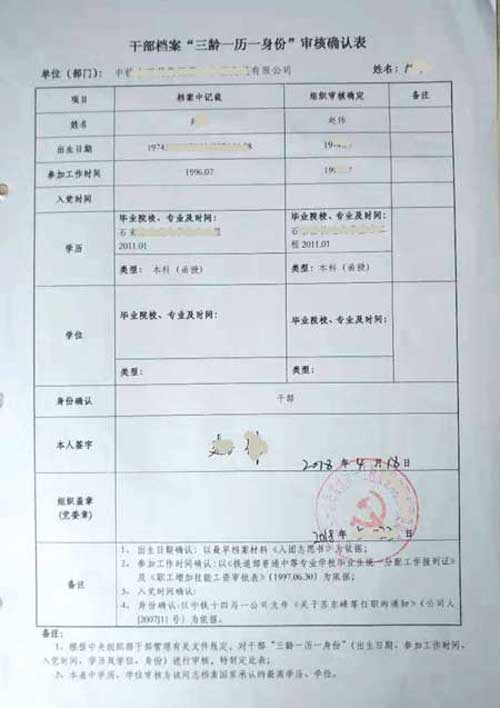 干部档案“三龄一历一身份”审核确认表
单位（部门）： 中铁 有限公司 姓名：
项目 档案中记载 组织审核确定 备注
姓名 赵伟
出生日期 1974. 19
参加工作时间 1996.07 199
入党时间
学历 毕业院校、专业及时间： 毕业院校、专业及时间：
石家 程 石
2011.01 程 2011.01
类型： 本科（函授） 类型： 本科（函授）
学位 毕业院校、专业及时间： 毕业院校、专业及时间：
类型： 类型：
身份确认 干部
本人签字
2018 年 4 月 18 日
组织盖章
（党委章） 2018 年 日
备注
1、 出生日期确认：以最早档案材料《入团志愿书》为依据；
2、 参加工作时间确认：以《铁道部普通中等专业学校毕业生统一分配工作报到证》
及《职工增加技能工资审批表》（1997.06.30）为依据；
3、 入党时间确认：
4、 身份确认：以中铁十四局一公司文件《关于苏东峰等任职的通知》（公司人
[2007]1号）为依据。
备注：
1、根据中央组织部干部管理有关文件规定，对干部“三龄一历一身份”（出生日期，参加工作时间，
入党时间，学历及学位，身份）进行审核，特制定此表；
2、本表中学历、学位审核为该同志档案国家承认的最高学历、学位。